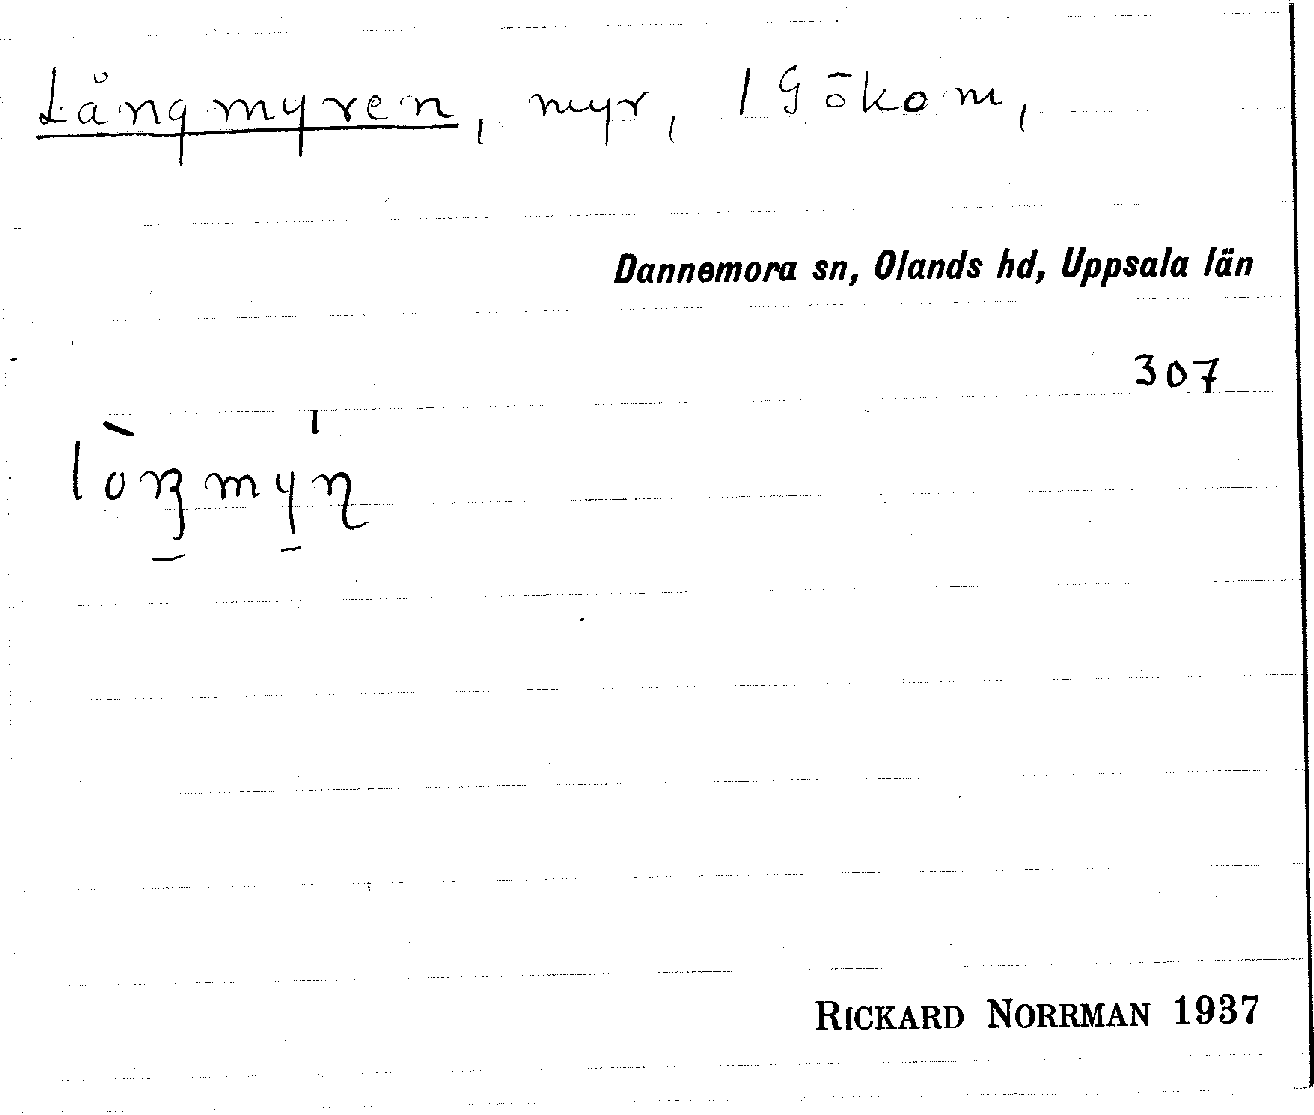 Långmyren, myr, i Gökom,
Dannemora sn, Olands hd, Uppsala län
307
RICKARD NORRMAN 1937